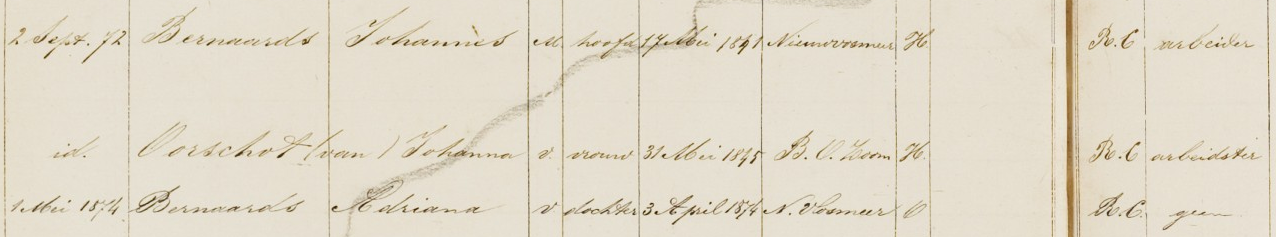 2 Sept. 72 Bernaards Johannes M. hoofd 17 Mei 1841 Nieuwvosmeer H. R.C arbeider
id. Oorschot (van) Johanna v. vrouw 31 Mei 1845 B. O. Zoom H. R.C arbeidster
1 Mei 1874. Bernaards Adriana v dochter 3 April 1874 N. Vosmeer O R.C. geen